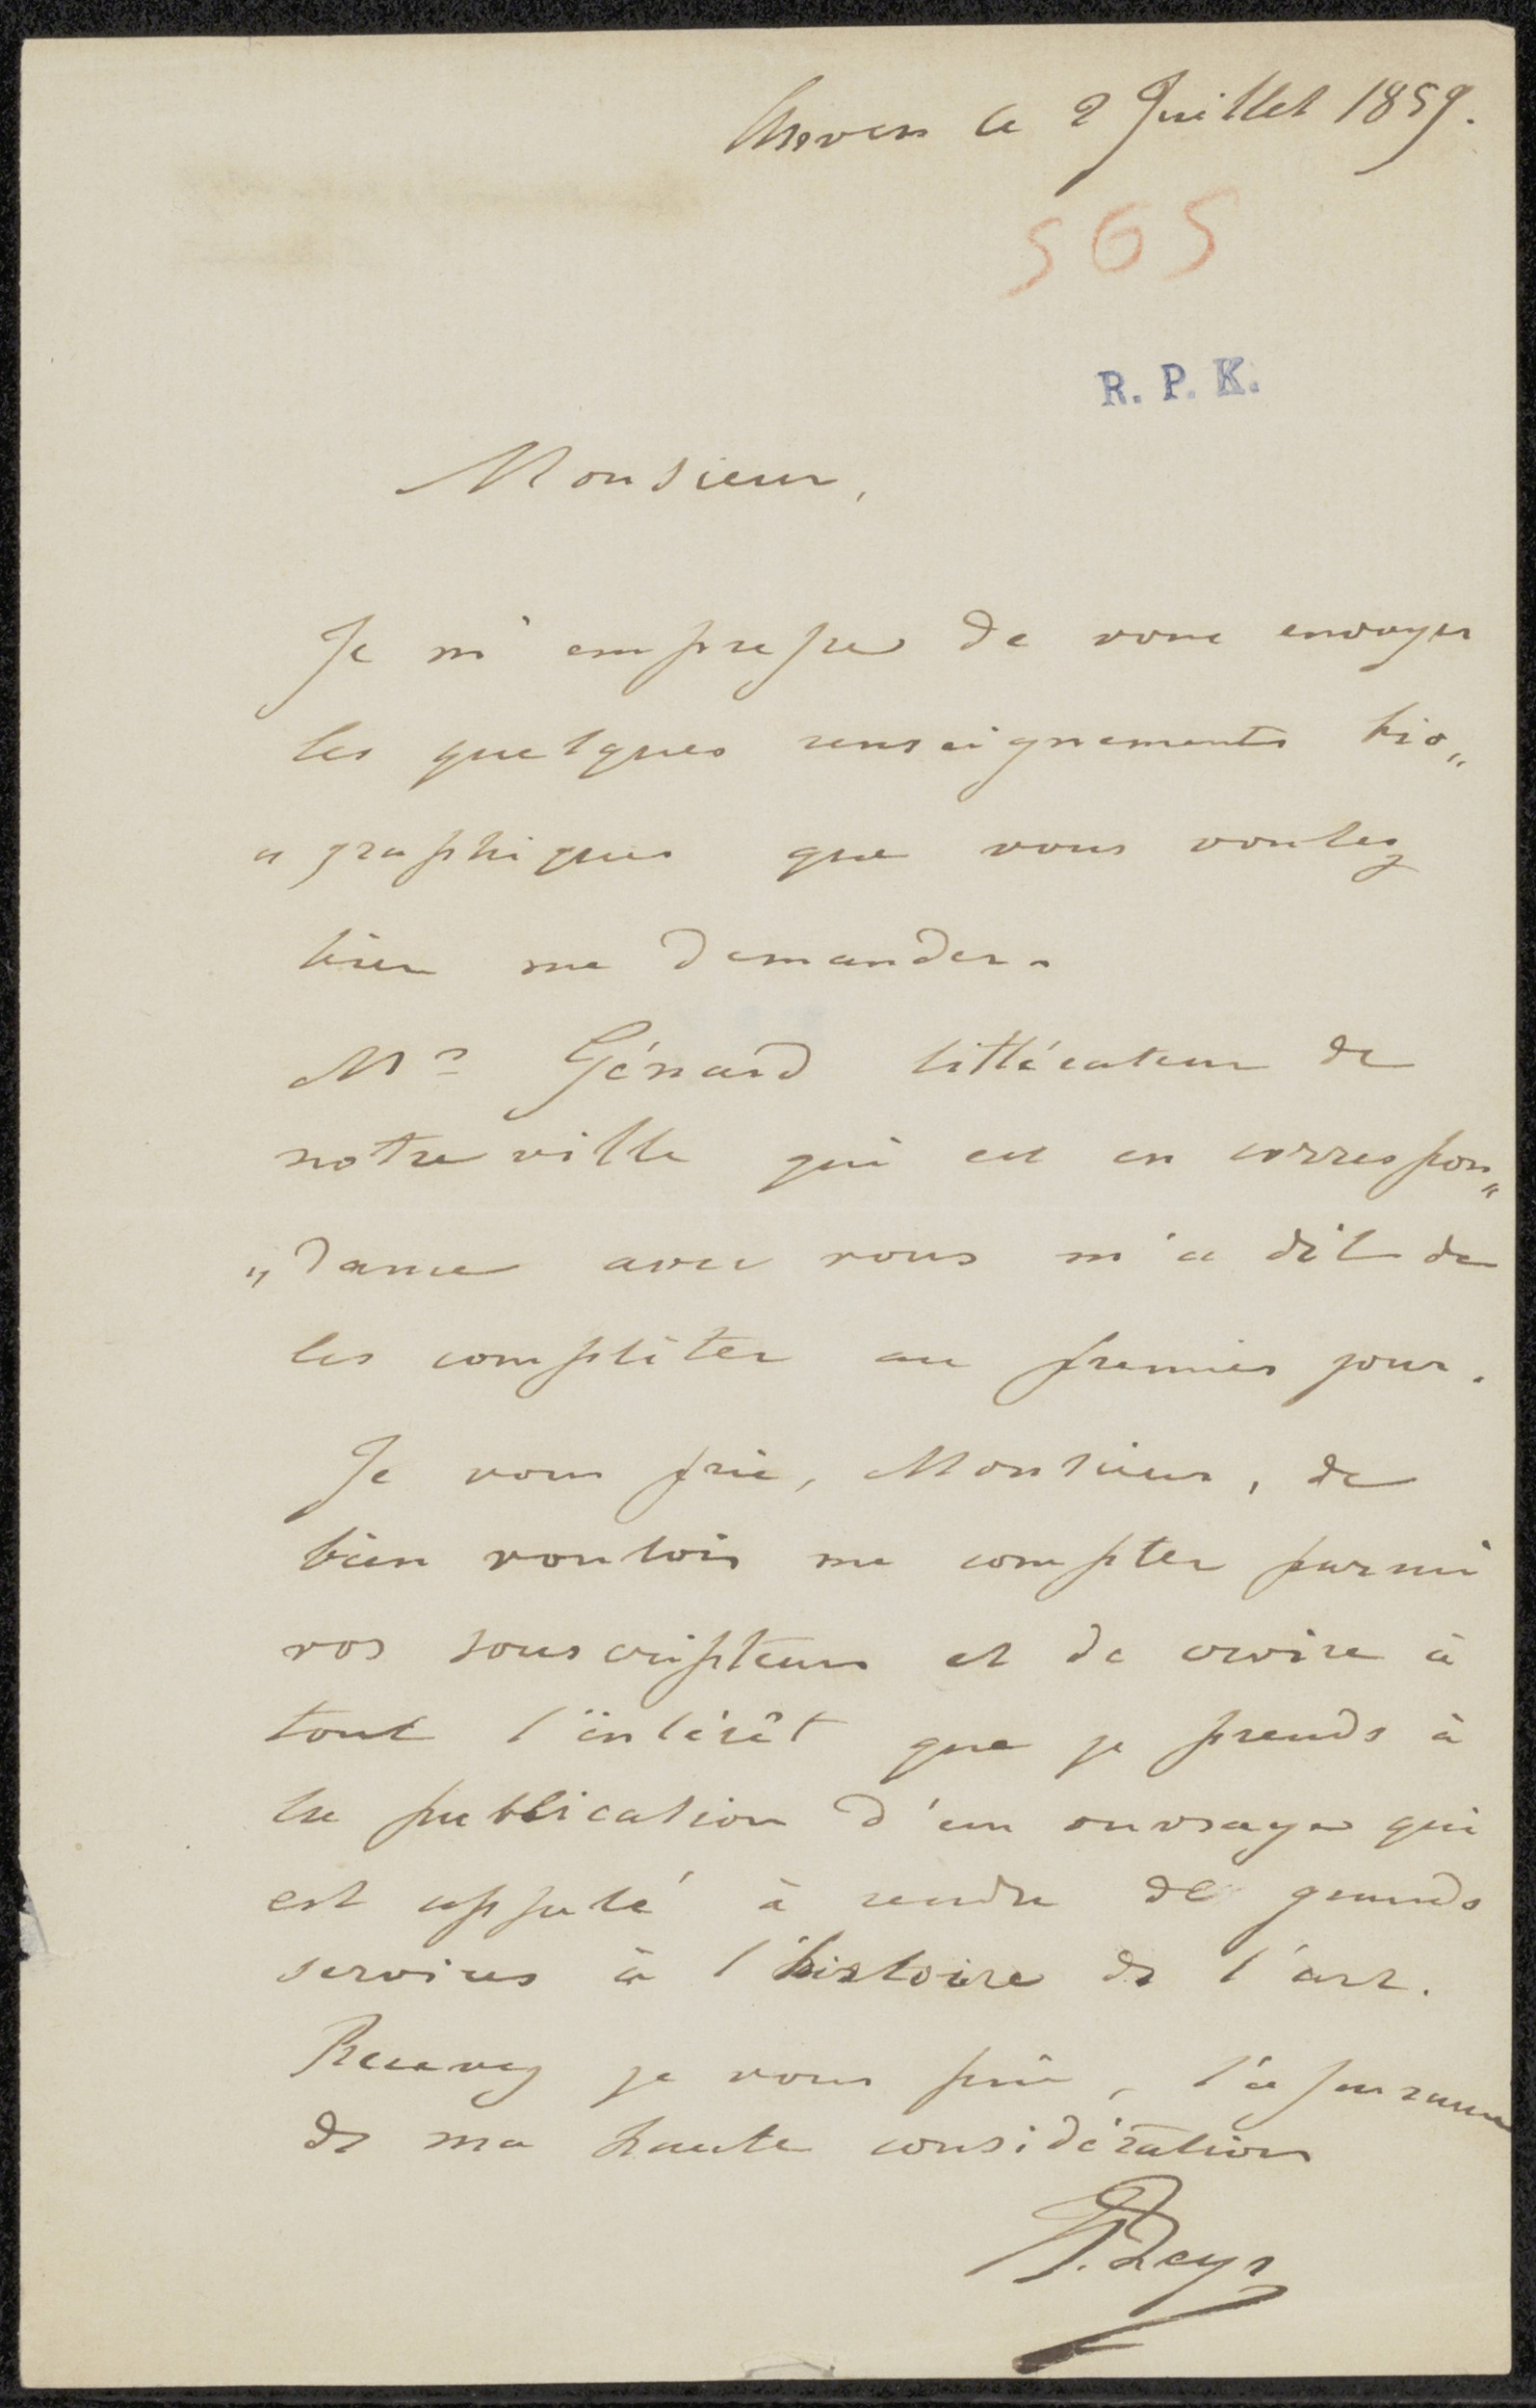 Anvers le 2 Juillet 1859.
565
R. P. K.
Monsieur,
Je m'empresse de vous envoyer
les quelques renseignements bio„
„graphiques que vous voulez
bien me demander.
Mr Génard littérateur de
notre ville qui est en correspon„
„dance avec vous m'a dit de
les complèter au premier jour.
Je vous prie, Monsieur, de
bien vouloir me compter parmi
vos souscripteurs et de croire à
tout l'intérêt que je prends à
la publication d'un ouvrage qui
est appelé à rendre de grands
services à l'histoire de l'art.
Recevez je vous prie, l'assurance
de ma haute considération
H. Leys